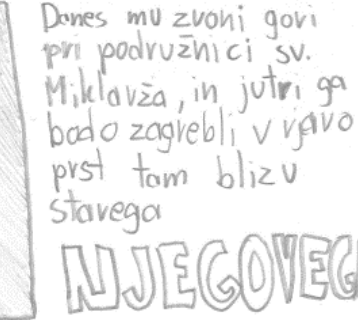 Danes mu zvoni gori
pri podružnici sv.
Miklavža, in jutri ga
bodo zagrebli v rjavo
prst tam blizu
starega
NJEGOVEG